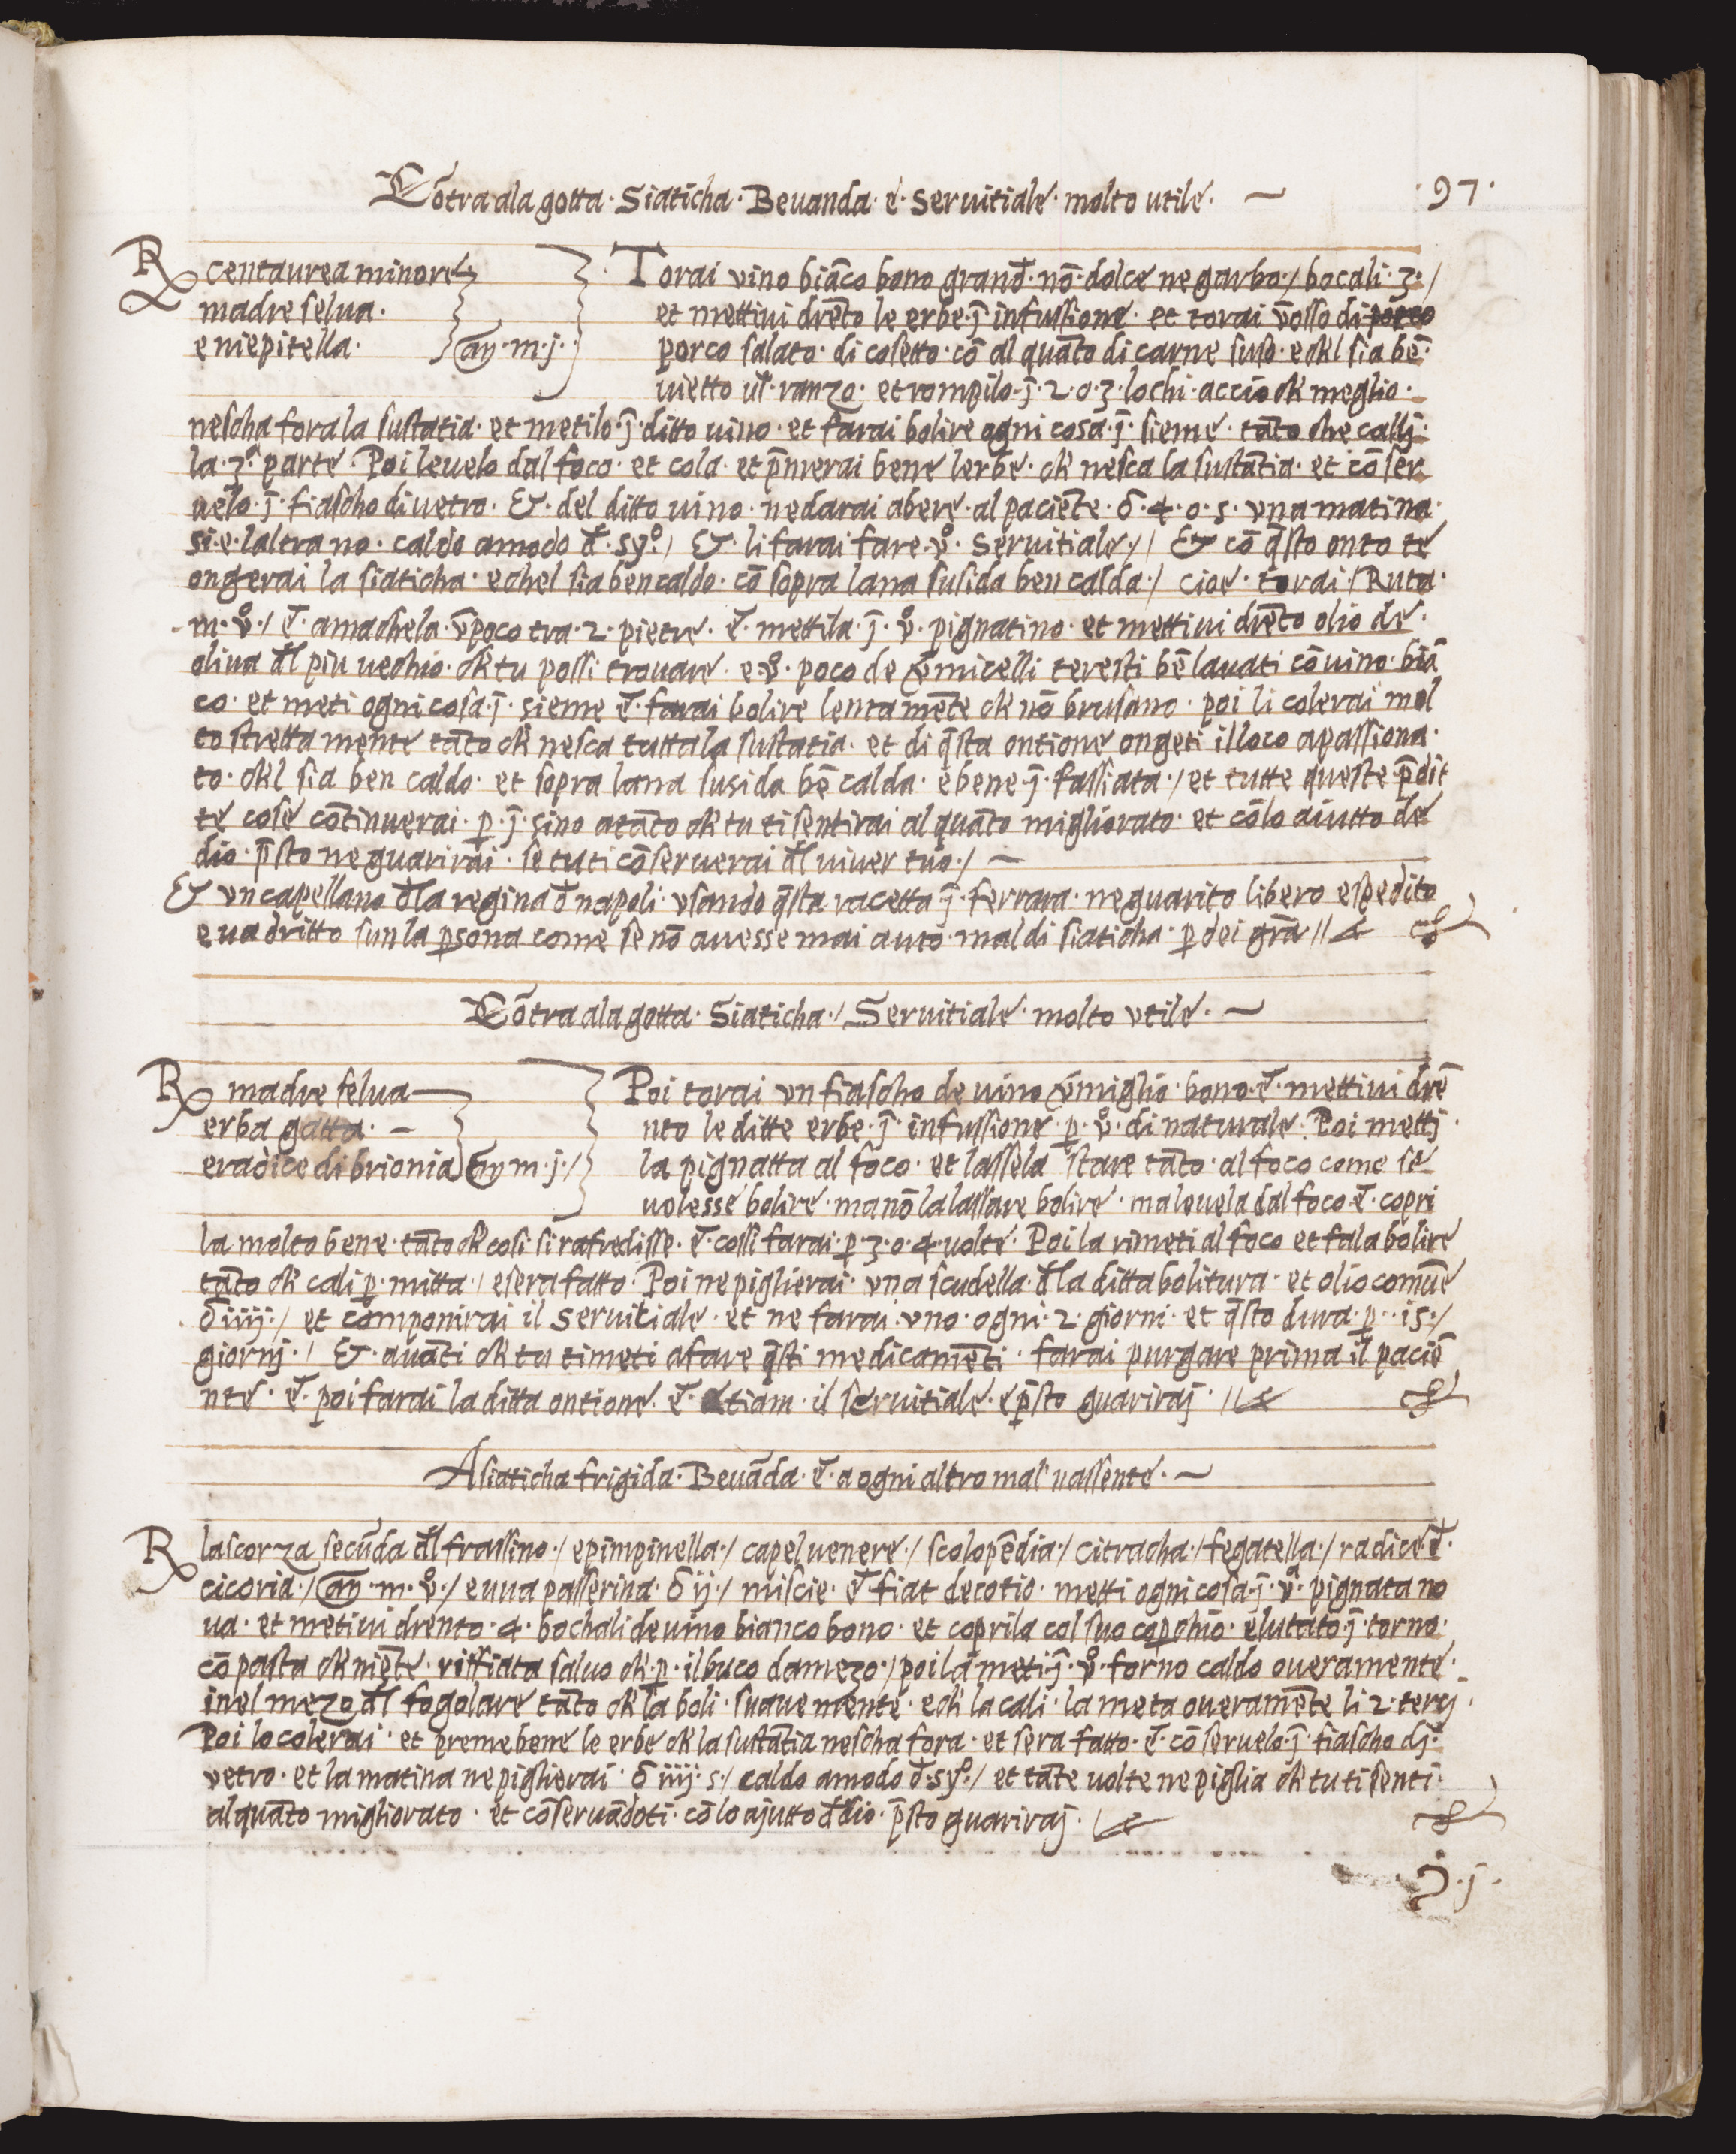 Cõtra ala gotta · Siaticha · Beuanda · e · seruitiale · molto utile · ~
· 97 ·
R centaurea minore
madre selua ·
e niepitella · an · m · j ·
Torai vino biãco bono grand · nõ · dolce ne garbo · / bocali · 3 · /
et mettiui drẽto le erbe · j̃ infussione · et torai v̄ osso di porco
porco salato · di cosetto · cõ al quãto di carne suso · e ch̄l sia bẽ ·
uietto ul · ranzo · et rompilo · j̃ · 2 · o · 3 · lochi · accio ch̄ meglio ·
nescha fora la sustatia · et metilo · j̃ · ditto uino · et farai bolire ogni cosa · j̃ · sieme · tãto che callj ·
la · 3ª · parte · Poi leuelo dal foco · et cola · et p̄merai bene lerbe · ch̄ nesca la sustãtia · et cõser
uelo · j̃ · fiascho di vetro · & · del ditto uino · ne darai a bere · al paciẽte · δ · 4 · o · 5 · vna matina ·
si · e · laltra no · caldo amodo đ · syº · / & · li farai fare · vº · Seruitiale · // & cõ q̄sto onto te
ongerai la siaticha · e chel sia ben caldo · cõ sopra lana susida ben calda · / cioe · torai · / Ruta ·
m · vº · / e · amachela · v̄ poco tra · 2 · pietre · e · mettila · j̃ · vº · pignatino · et mettiui drẽto olio de ·
oliua đl piu uechio · ch̄ tu possi trouare · e · vº · poco de v̄micelli teresti bẽ lauati cõ uino · biã
co · et meti ogni cosa · j̃ · sieme e · farai bolire lentamẽte ch̄ nõ brusano · poi li colerai mol
to stretta mente tãto ch̄ nesca tutta la sustatia · et di q̄sta ontione ongeti il loco apassiona ·
to · ch̄l sia ben caldo · et sopra lana susida bẽ calda · e bene · j̃ · fassiata · / et tutte queste p̄dit
te cose cõtinuerai · p · j̃ · sino atãto ch̄ tu ti sentirai al quãto migliorato · et cõ lo aiutto de
dio · p̄sto ne guarirai · se tu ti cõseruerai đl uiuer tuo · / ~
& vn capellano đla regina đ napoli · vsando q̄sta racetta · j̃ · ferrara · ne guarito libero espedito
e ua dritto sun la psona come se nõ auesse mai auto · mal di siaticha · p dei grã //
Cõtra ala gotta · Siaticha · / Seruitiale · molto vtile · ~
R madre selua
erba gatta · ~
e radice di brionia an m · j · /
Poi torai vn fiascho de uino v̄miglio · bono · e · mettiui drẽ
nto le ditte erbe · j̃ · infussione · p · vº · di naturale · Poi mettj ·
la pignatta al foco · et lassela stare tãto · al foco come se
uolesse bolire · ma nõ la lassare bolire · ma leuela dal foco · e · copri
la molto bene · tãto ch̄ cosi si rafredisse · e · cossi farai · p · 3 · o · 4 · uolte · Poi la rimeti al foco et fala bolire
tãto ch̄ cali p · mitta · / e sera fatto · Poi ne piglierai · vna scudella · đla ditta bolitura · et olio comũe
δ iiij · / et componirai il seruitiale · et ne farai · vno · ogni · 2 · giorni · et q̄sto dura · p · 15 · /
giornj · / & · auãti ch̄ tu ti meti a fare q̄sti medicamẽti · farai purgare prima il paciẽ
nte · e · poi farai la ditta ontione · e · etiam · il seruitiale · e p̄sto guarirai · //
A siaticha frigida · Beuãda · e · a ogni altro mal nassente · ~
R la scorza secũda đl frassino · / e pimpinella · / capel uenere · / scolopẽdia · / citracha · / fegatella · / radice đ ·
cicoria · / an · m · vº · / e uua passerina · δ ij · / miscie · e · fiat decotio · metti ogni cosa · j̃ · vª · pignata no
ua · et metiui drento · 4 · bochali de uino bianco bono · et coprila col suo copchio · e lutato · j̃ · torno ·
cõ pasta ch̄ niẽte · riffiata saluo ch̄ · p · il buco da mezo · / poi la meti · j̃ · vº · forno caldo oueramente ·
in el mezo đl fogolare tãto ch̄ la boli · suaue mente · e ch̄ la cali · la meta oueramẽte li 2 · tercj ·
Poi lo colerai · et preme bene le erbe ch̄ la sustãtia nescha fora · et sera fatto · e · cõseruelo · j̃ · fiascho dj ·
vetro · et la matina ne piglierai · δ iiij · s · / caldo amodo đ · syº · / et tãte uolte ne piglia ch̄ tu ti senti ·
al quãto migliorato · et cõseruãdoti · cõ lo ajutto đ dio · p̄sto guarirai · /
Ɔ · j ·